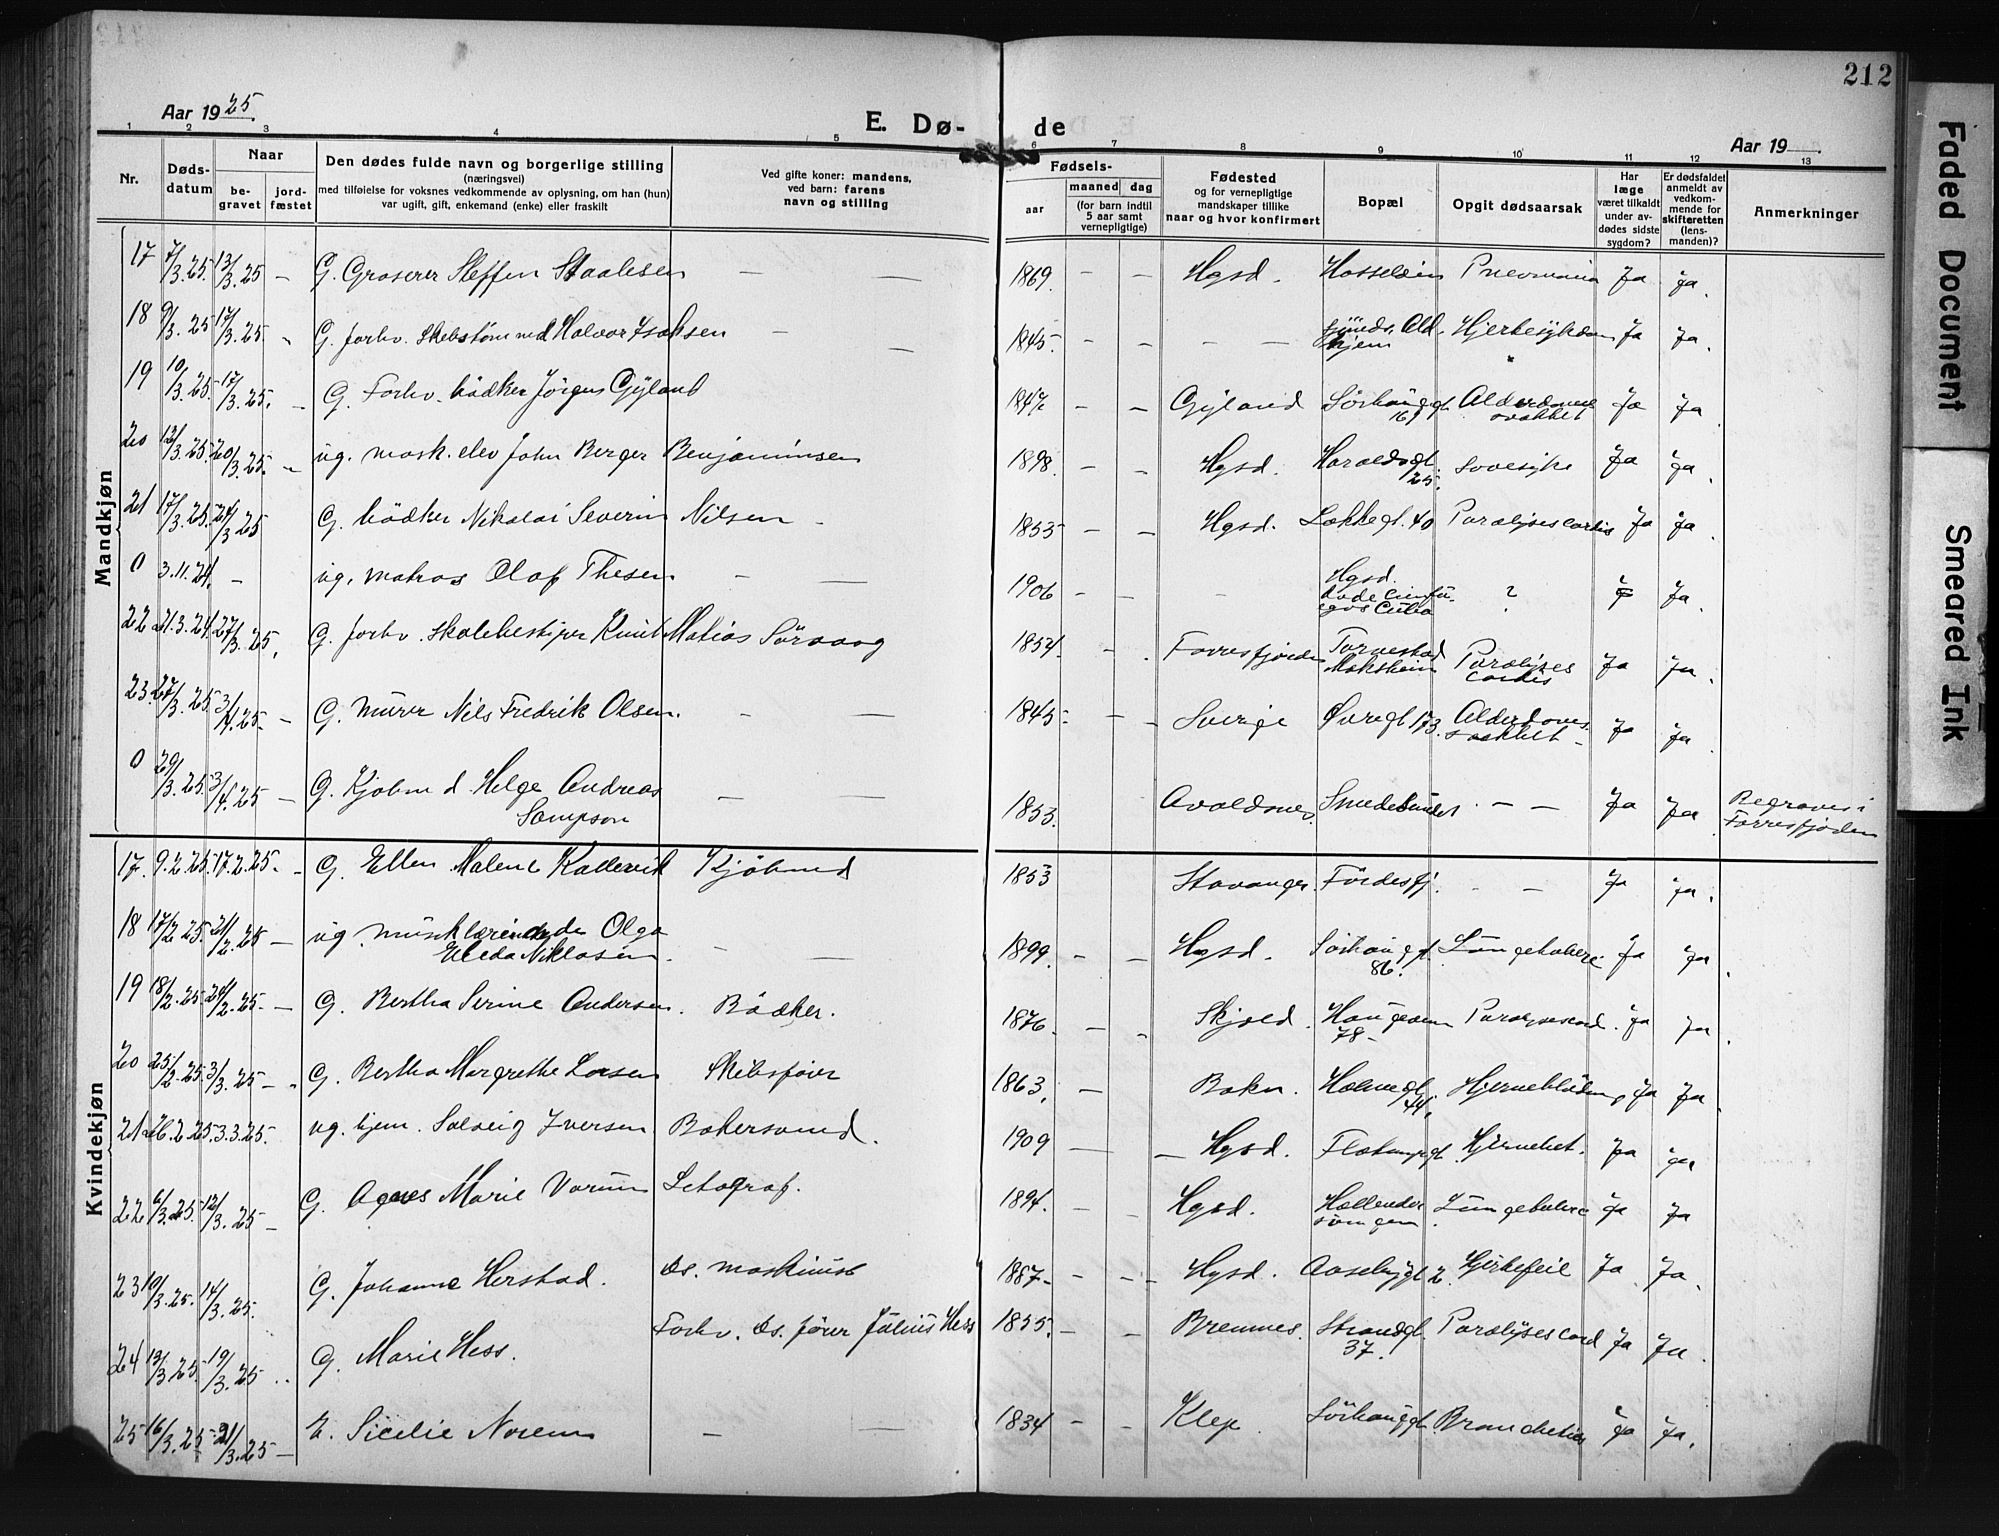 212
Aar 1925.
E. Dø-
de
Aar 19
1 2 3 4 5 6 7 8 9 10 11 12 13
Nr.
Døds-
datum
Naar
be-
gravet
jord-
fæstet
Den dødes fulde navn og borgerlige stilling
(næringsvei)
med tilføielse for voksnes vedkommende av oplysning, om han (hun)
var ugift, gift, enkemand (enke) eller fraskilt
Ved gifte koner: mandens,
ved barn: farens
navn og stilling
Fødsels-
aar
maaned
dag
(for barn indtil
5 aar samt
vernepligtige)
Fødested
og for vernepligtige
mandskaper tillike
naar og hvor konfirmert
Bopæl
Opgit dødsaarsak
Har
læge
været tilkaldt
under av-
dødes sidste
sygdom?
Er dødsfaldet
anmeldt av
vedkom-
mende for
skifteretten
(lens-
manden)?
Anmerkninger
Mandkjøn
17 7/3.25. 13/3.25 - G. Groserer Steffen Staalesen - - 1869. - - Hgsd. Hasseløen Pneumonia Ja Ja.
18 9/3.25 17/3.25. G. forhv. Skibstømmd Halvor Isaksen - - 1845. - - - - Ald.hjem Hjertesykdom Ja Ja.
19 10/3.25. 17/3.25. - G. Forhv. bødker Jørgen Gyland - - Gyland Sørhauggt 167 Alderdoms svakhet Ja Ja
20 12/3.25. 20/3.25. - ug. mask. elev John Berger Benjaminsen 1898. - - Hgsd. Haraldsgt. 125. Sovesyke Ja Ja.
21 17/3.25. 24/3 25 G. bödker Nikolai Severin Nilsen - 1853 - - Hgsd. Løkkegt. 40 Paralyses cordis Ja Ja.
0 3.11.24. - ug. matros Olaf Thesen - - 1906 - - - Hgsd. døde Cienfuegos Cuba ? Ja.
22 21.3.24. 27/3.25. G. forhv. skolebestyrer Knut Matias Sörvaag 1854. - . Førresfjorden Paralyses cordis Ja Ja.
23. 27/3.25. 3/4.25. - G. Murer Nils Fredrik Olsen. - - 1845. - - Sverige Øvregt 173. Alderdoms svakhet - Ja Ja.
0 29/3.25. 3/4.25 - G. Kjøbmd Helge Andreas Sampson - - 1853. Avaldsnes. Smedesundet - - Ja Ja. Begraves i Førresfjorden
Kvindekjøn
17. 9.2.25. 17.2.25. - G. Ellen Malene Kallevik Kjöbmd 1853 Stavanger. Fördesfj. - - Ja Ja.
18 17/2 25. 21/2.25 - ug. musiklærerinde Olga Elida Niklasen. - - 1899. - - Hgsd. Sørhauggt 86. Lungetuberc. Ja Ja.
19 18/2.25. 24/2.25. - G. Bertha Serine Andersen. Bödker. 1876. - - Skjold. Haugeveien 78 - Paralyses cord. Ja Ja.
20 25/2.25. 3/3.25 - G. Bertha Margrethe Larsen Skibsfører 1863. - Bokn. Holmegt 44. Hjerneblödning Ja Ja.
21 26.2.25. 3.3.25. ug. hjem. Solveig Iversen Bakersvend. 1909 - - Hgsd. Flotmyrgt. Hjernebet. Ja Ja
22 6/3.25. 12/3.25 - G. Agnes Marie Vorum Litograf. 1894. - - Hgsd. Hollendersvingen Lungetuberc. Ja Ja
23 10/3.25. 14/3.25. G. Johanne Herstad. ds. maskinist 1887 - - - Hgsd. Aasebygt 2. Hjertefeil Ja Ja.
24 13/3.25. 19/3.25 G. Marie Hess. Forhv. ds. fører Julius Hess 1855. - - Bremnes. Strandgt 37. Paralyses cord Ja Ja.
25 16/3.25. 21/3.25 - E. Sicelie Norem - - 1834 - - Klep Sørhauggt. Bronchetis Ja Ja.
Faded Document
Smeared Ink